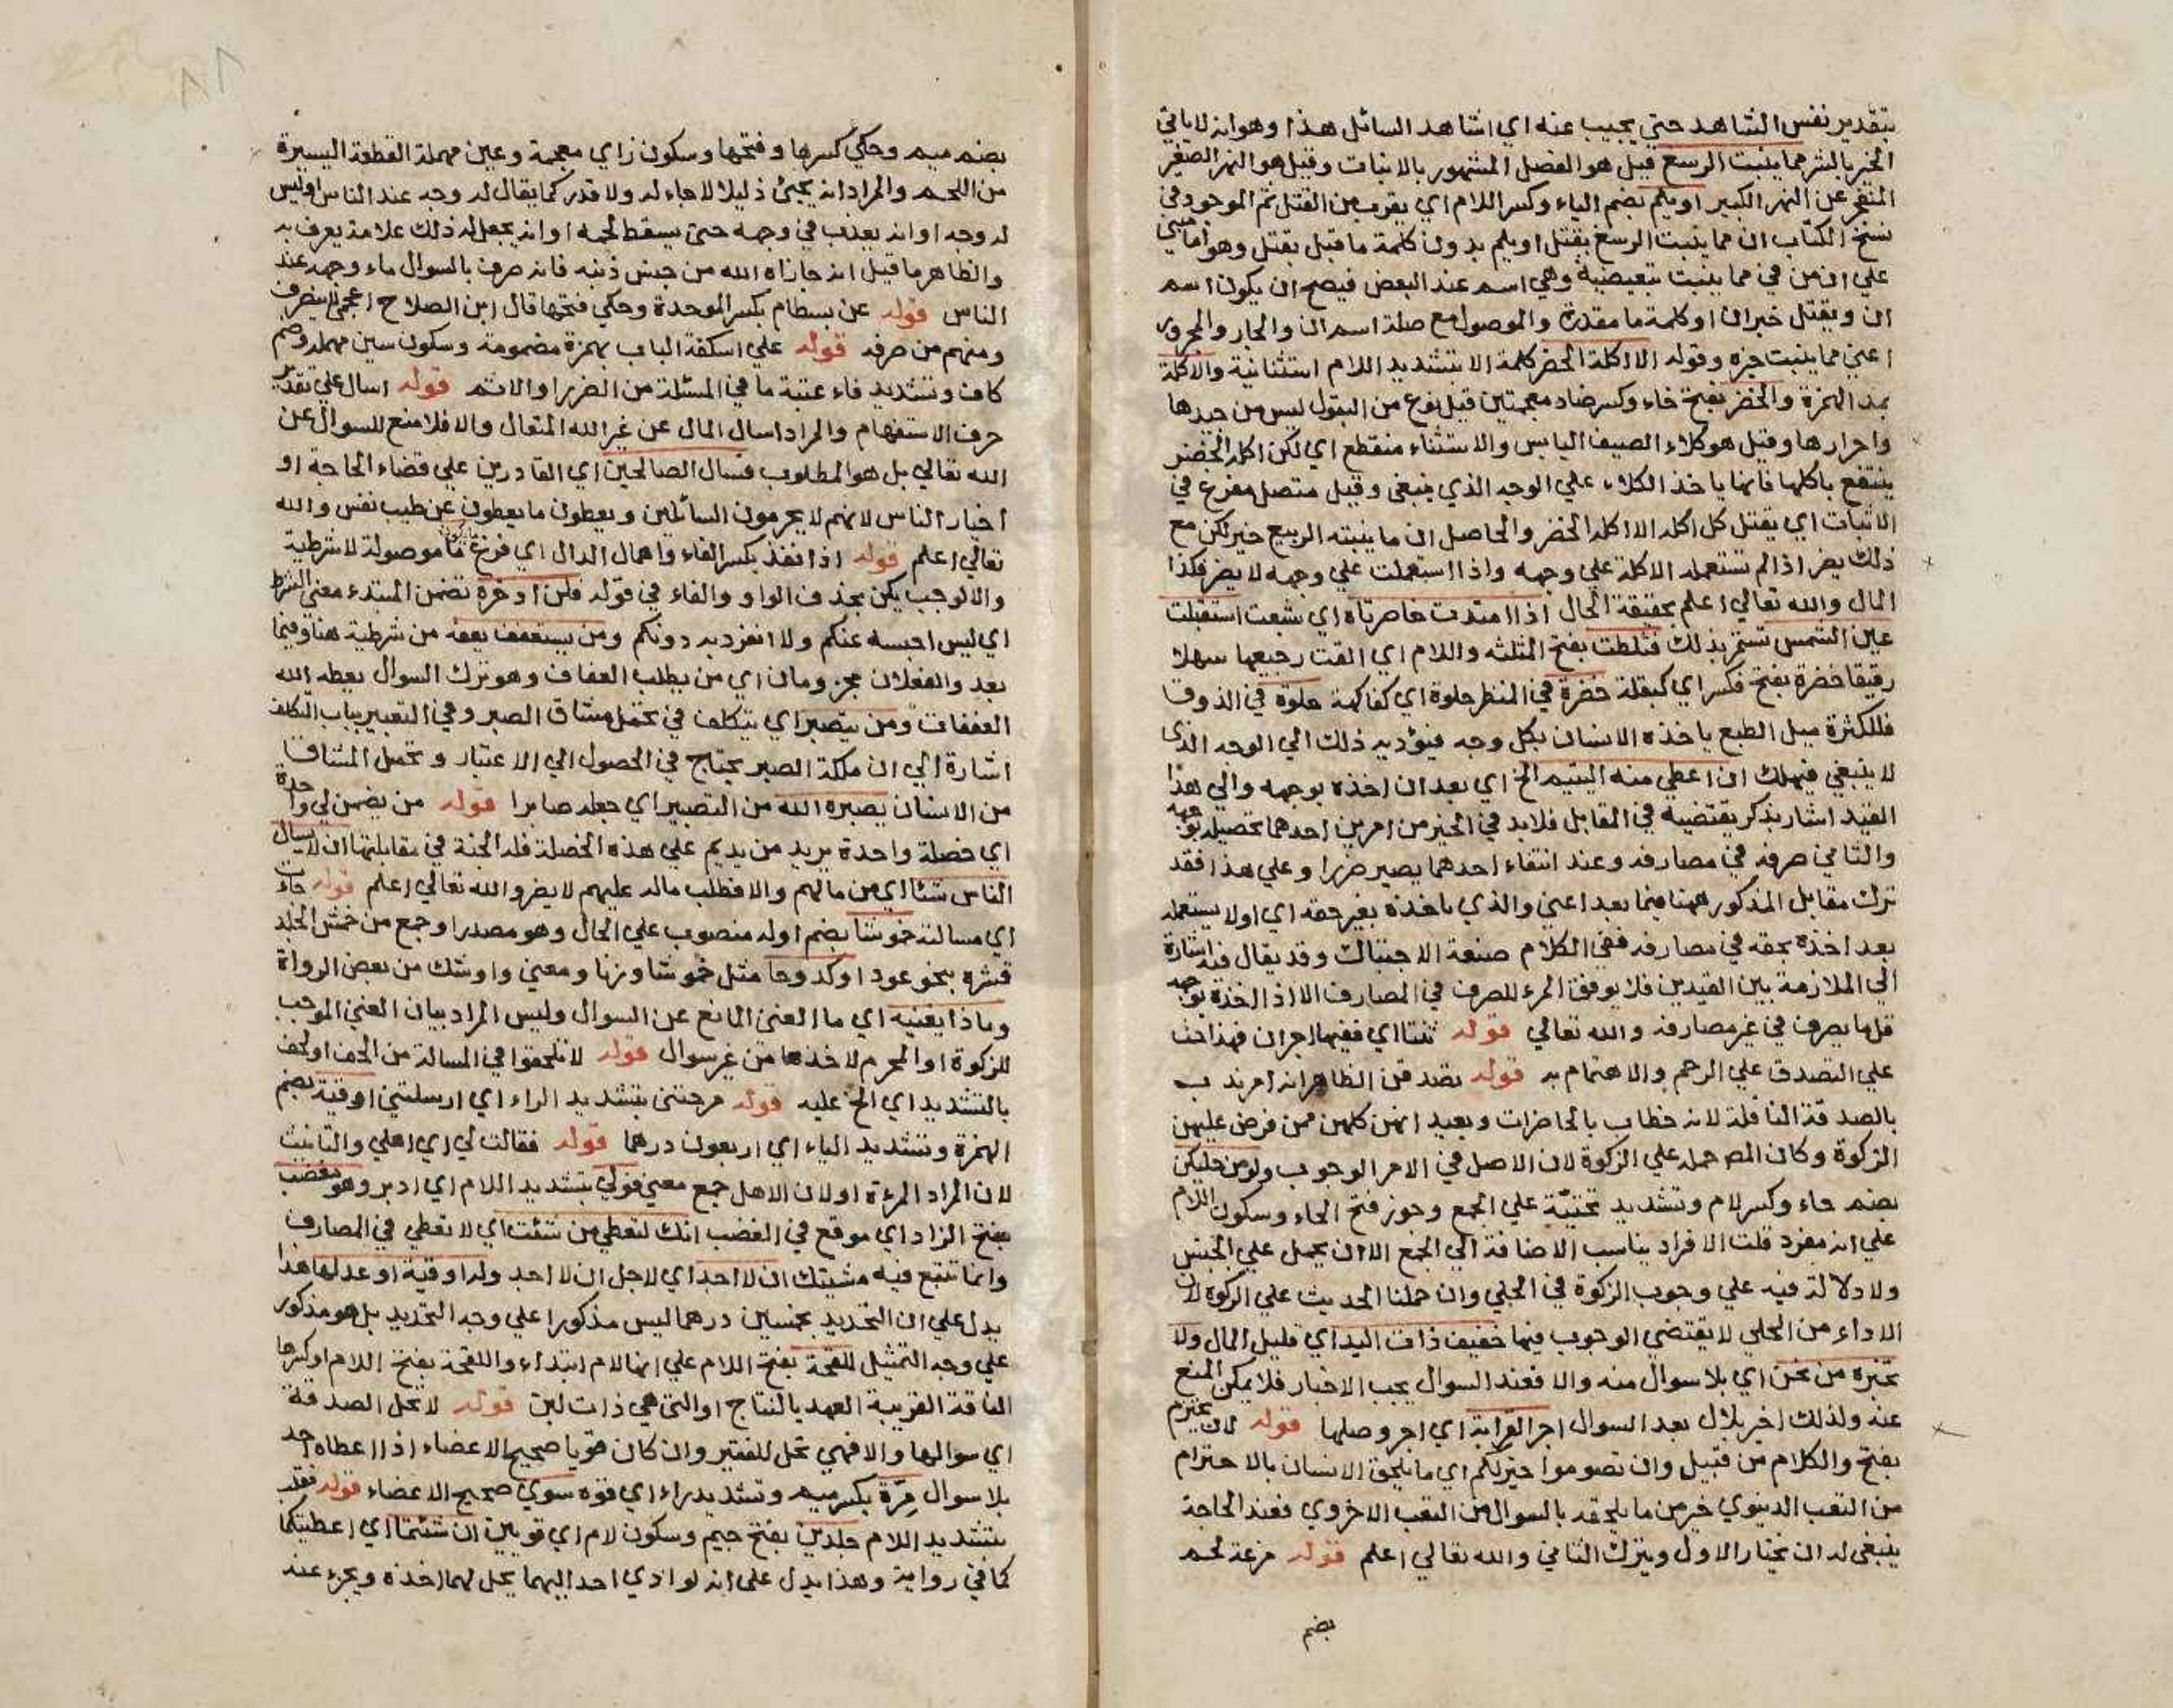 بتقدير نفس الشاهد حتي يجيب عنه اي اشاهد السائل هذا وهوانه لا ياتي
الخير بالشر مما ينبت الربيع قيل هو الفصل المشهور بالانبات وقيل هو النهر الصغير
المتفجر عن النهر الكبير او يلم بضم الياء وكسر اللام اي يقرب من القتل ثم الموجود في
نسخ الكتاب ان مما ينبت الربيع يقتل او يلم بدون كلمة ما قبل يقتل وهو اما مبني
علي ان من في مما ينبت تبعيضية وهي اسم عند البعض فيصح ان يكون اسم
ان ويقتل خبر ان او كلمة ما مقدرة والموصول مع صلة اسم ان والجار والمجرور
اعني مما ينبت خبره وقوله الا اكلة الخضر كلمة الا بتشديد اللام استثنائية والاكلة
بمد الهمزة والخضر بفتح خاء وكسر ضاد معجمتين قيل نوع من البقول ليس من جيدها
واحرارها وقيل هو كلاء الصيف اليابس والاستثناء منقطع اي لكن اكلة الخضر
ينتفع باكلها فانها ياخذ الكلاء علي الوجه الذي ينبغي وقيل متصل مفرع في
الاثبات اي يقتل كل اكلة الا اكلة الخضر والحاصل ان ما ينبته الربيع خير لكن مع
ذلك يضر اذا لم تستعمله الاكلة علي وجهه واذا استعملت علي وجهه لا يضر فكذا
المال والله تعالي اعلم بحقيقة الحال اذا امتدت خاصرتاه اي شبعت استقبلت
عين الشمس تستمر بذلك فثلطت بفتح المثلثه واللام اي القت رجيعها سهلا
رقيقا خضرة بفتح فكسر اي كبقلة خضرة في النظر حلوة اي كفاكهة حلوة في الذوق
فللكثرة ميل الطبع ياخذه الانسان بكل وجه فيؤديه ذلك الي الوجه الذي
لا ينبغي فيهلك ان اعطي منه اليتيم الخ اي بعد ان اخذه بوجهه والي هذا
القيد اشار بذكر يقتضيه في المقابل فلا بد في الخير من امرين احدهما تحصيله بوجهه
والثاني صرفه في مصارفه وعند انتفاء احدهما يصير ضررا وعلي هذا فقد
ترك مقابل المذكور ههنا فيما بعد اعني والذي ياخذه بغير حقه اي او لا يستعمله
بعد اخذه بحقه في مصارفه ففي الكلام صنعة الاحتباك وقد يقال فيه اشارة
الي الملازمة بين القيدين فلا يوفق المرء للصرف في المصارف الا اذا اخذه بوجهه
قلما يصرف في غير مصارفه والله تعالي قوله ثنتا اي ففيها اجران فهذا حث
علي التصدق علي الرحم والاهتمام به قوله تصدقن الظاهر انه امر ندب
بالصدقة النافلة لانه خطاب بالحاضرات وبعيد انهن كلهن ممن فرض عليهن
الزكوة وكان المص حمله علي الزكوة لان الاصل في الامر الوجوب ولو من حليكن
بضم حاء وكسر لام وتشديد تحتيّة علي الجمع وجوز فتح الحاء وسكون اللام
علي انه مفرد قلت الافراد يناسب الاضافة الي الجمع الا ان يحمل علي الجنس
ولا دلالة فيه علي وجوب الزكوة في الحلي وان حملنا الحديث علي الزكوة لان
الاداء من الحلي لا يقتضي الوجوب فيها خفيف ذات اليد اي قليل المال ولا
تخبره من نحن اي بلا سوال منه والا فعند السوال يجب الاخبار فلا يمكن المنع
عنه ولذلك اخبر بلال بعد السوال اجر القرابة اي اجر وصلها قوله لان يحتزم
بفتح والكلام من قبيل وان تصوموا خير لكم اي ما يلحق الانسان بالاحتزام
من التعب الدنيوي خير من ما يلحقه بالسوال من التعب الاخروي فعند الحاجة
ينبغي له ان يختار الاول ويترك الثاني والله تعالي اعلم قوله مزعة لحم
بضم
٨٨
بضم ميم وحكي كسرها وفتحها وسكون زاي معجمة وعين مهملة القطعة اليسيرة
من اللحم والمراد انه يجيئ ذليلا لا جاه له ولا قدر كما يقال له وجه عند الناس او ليس
له وجه او انه يعذب في وجهه حتي يسقط لحمه او انه يجعل له ذلك علامة يعرف به
والظاهر ما قيل انه جازاه الله من جنس ذنبه فانه صرف بالسوال ماء وجهه عند
الناس قوله عن بسطام بكسر الموحدة وحكي فتحها قال ابن الصلاح اعجمي لا ينصرف
ومنهم من صرفه قوله علي اسكفة الباب بهمزة مضمومة وسكون سين مهملة وضم
كاف وتشديد فاء عتبة ما في المسئلة من الضرر او الاثم قوله اسال علي تقدير
حرف الاستفهام والمراد اسال المال عن غير الله المتعال والا فلا منع للسوال عن
الله تعالي بل هو المطلوب فسال الصالحين اي القادرين علي قضاء الحاجة او
اخيار الناس لانهم لا يحرمون السائلين ويعطون ما يعطون عن طيب نفس والله
تعالي اعلم قوله اذا نفد بكسر الفاء واهمال الدال اي فرغ ما موصولة لا شرطية
والا لوجب يكن بحذف الواو والفاء في قوله فلن ادخره تضمن المبتدء معني الشرط
اي ليس احبسه عنكم ولا انفرد به دونكم ومن يستعفف يعفه من شرطية هنا وفيما
بعد والفعلان مجزومان اي من يطلب العفاف وهو ترك السوال يعطه الله
العفاف ومن يتصبر اي يتكلف في تحمل مشاق الصبر وفي التعبير بباب التكلف
اشارة الي ان ملكة الصبر يحتاج في الحصول الي الاعتبار وتحمل المشاق
من الانسان يصبره الله من التصبير اي جعله صابرا قوله من يضمن لي واحدة
اي خصلة واحدة يريد من يديم علي هذه الخصلة فله الجنة في مقابلتها ان لا يسال
الناس شئا اي من مالهم والا فطلب ماله عليهم لا يضر والله تعالي اعلم قوله جاءت
اي مسالته خموشا بضم اوله منصوب علي الحال وهو مصدر او جمع من خمش الجلد
قشره بنحو عود او كدوحا مثل خموشا وزنا ومعني واو شك من بعض الرواة
وماذا يغنيه اي ما الغني المانع عن السوال وليس المراد بيان الغني الموجب
للزكوة او المحرم لاخذها من غير سوال قوله لا تلحفوا في المسالة من الحف او لحف
بالتشديد اي الح عليه قوله سرحتني بتشديد الراء اي ارسلتني اوقية بضم
الهمزة وتشديد الياء اي اربعون درهما قوله فقالت لي اي اهلي والتانيث
لان المراد المرءة او لان الاهل جمع معني فولي بتشديد اللام اي ادبر وهو مغضب
بفتح الزاد اي موقع في الغضب انك لتعطي من شئت اي لا تعطي في المصارف
وانما تتبع فيه مشيتك ان لا اجد اي لاجل ان لا اجد وله اوقية او عدلها هذا
يدل علي ان التحديد بخمسين درهما ليس مذكورا علي وجه التحديد بل هو مذكور
علي وجه التمثيل للقحة بفتح اللام علي انها لام ابتداء واللقحة بفتح اللام او كسرها
الناقة القريبة العهد بالنتاج او التي هي ذات لبن قوله لا تحل الصدقة
اي سوالها والا فهي تحل للفقير وان كان قويا صحيح الاعضاء اذا اعطاه احد
بلا سوال مرّة بكسر ميم وتشديد راء اي قوه سوي صحيح الاعضاء قوله فقلب
بتشديد اللام جلدين بفتح جيم وسكون لام اي قويين ان شئتما اي اعطيتكما
كما في رواية وهذا يدل علي انه لو ادي احد اليهما يحل لهما اخذه ويجزء عنه